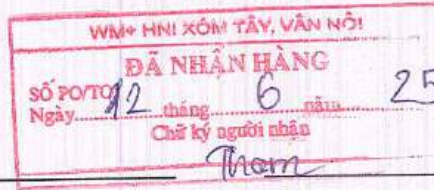 WM+ HNI XÓM TÂY, VÂN NỘI
ĐÃ NHẬN HÀNG
SỐ PO/TO
Ngày 12 tháng 6 năm 25
Chữ ký người nhận
Thơm